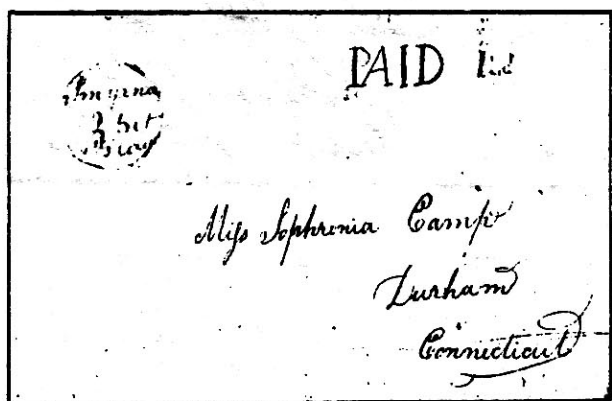 Smyrna
PAID
Miss Sophronia Camp
Durham
Connecticut